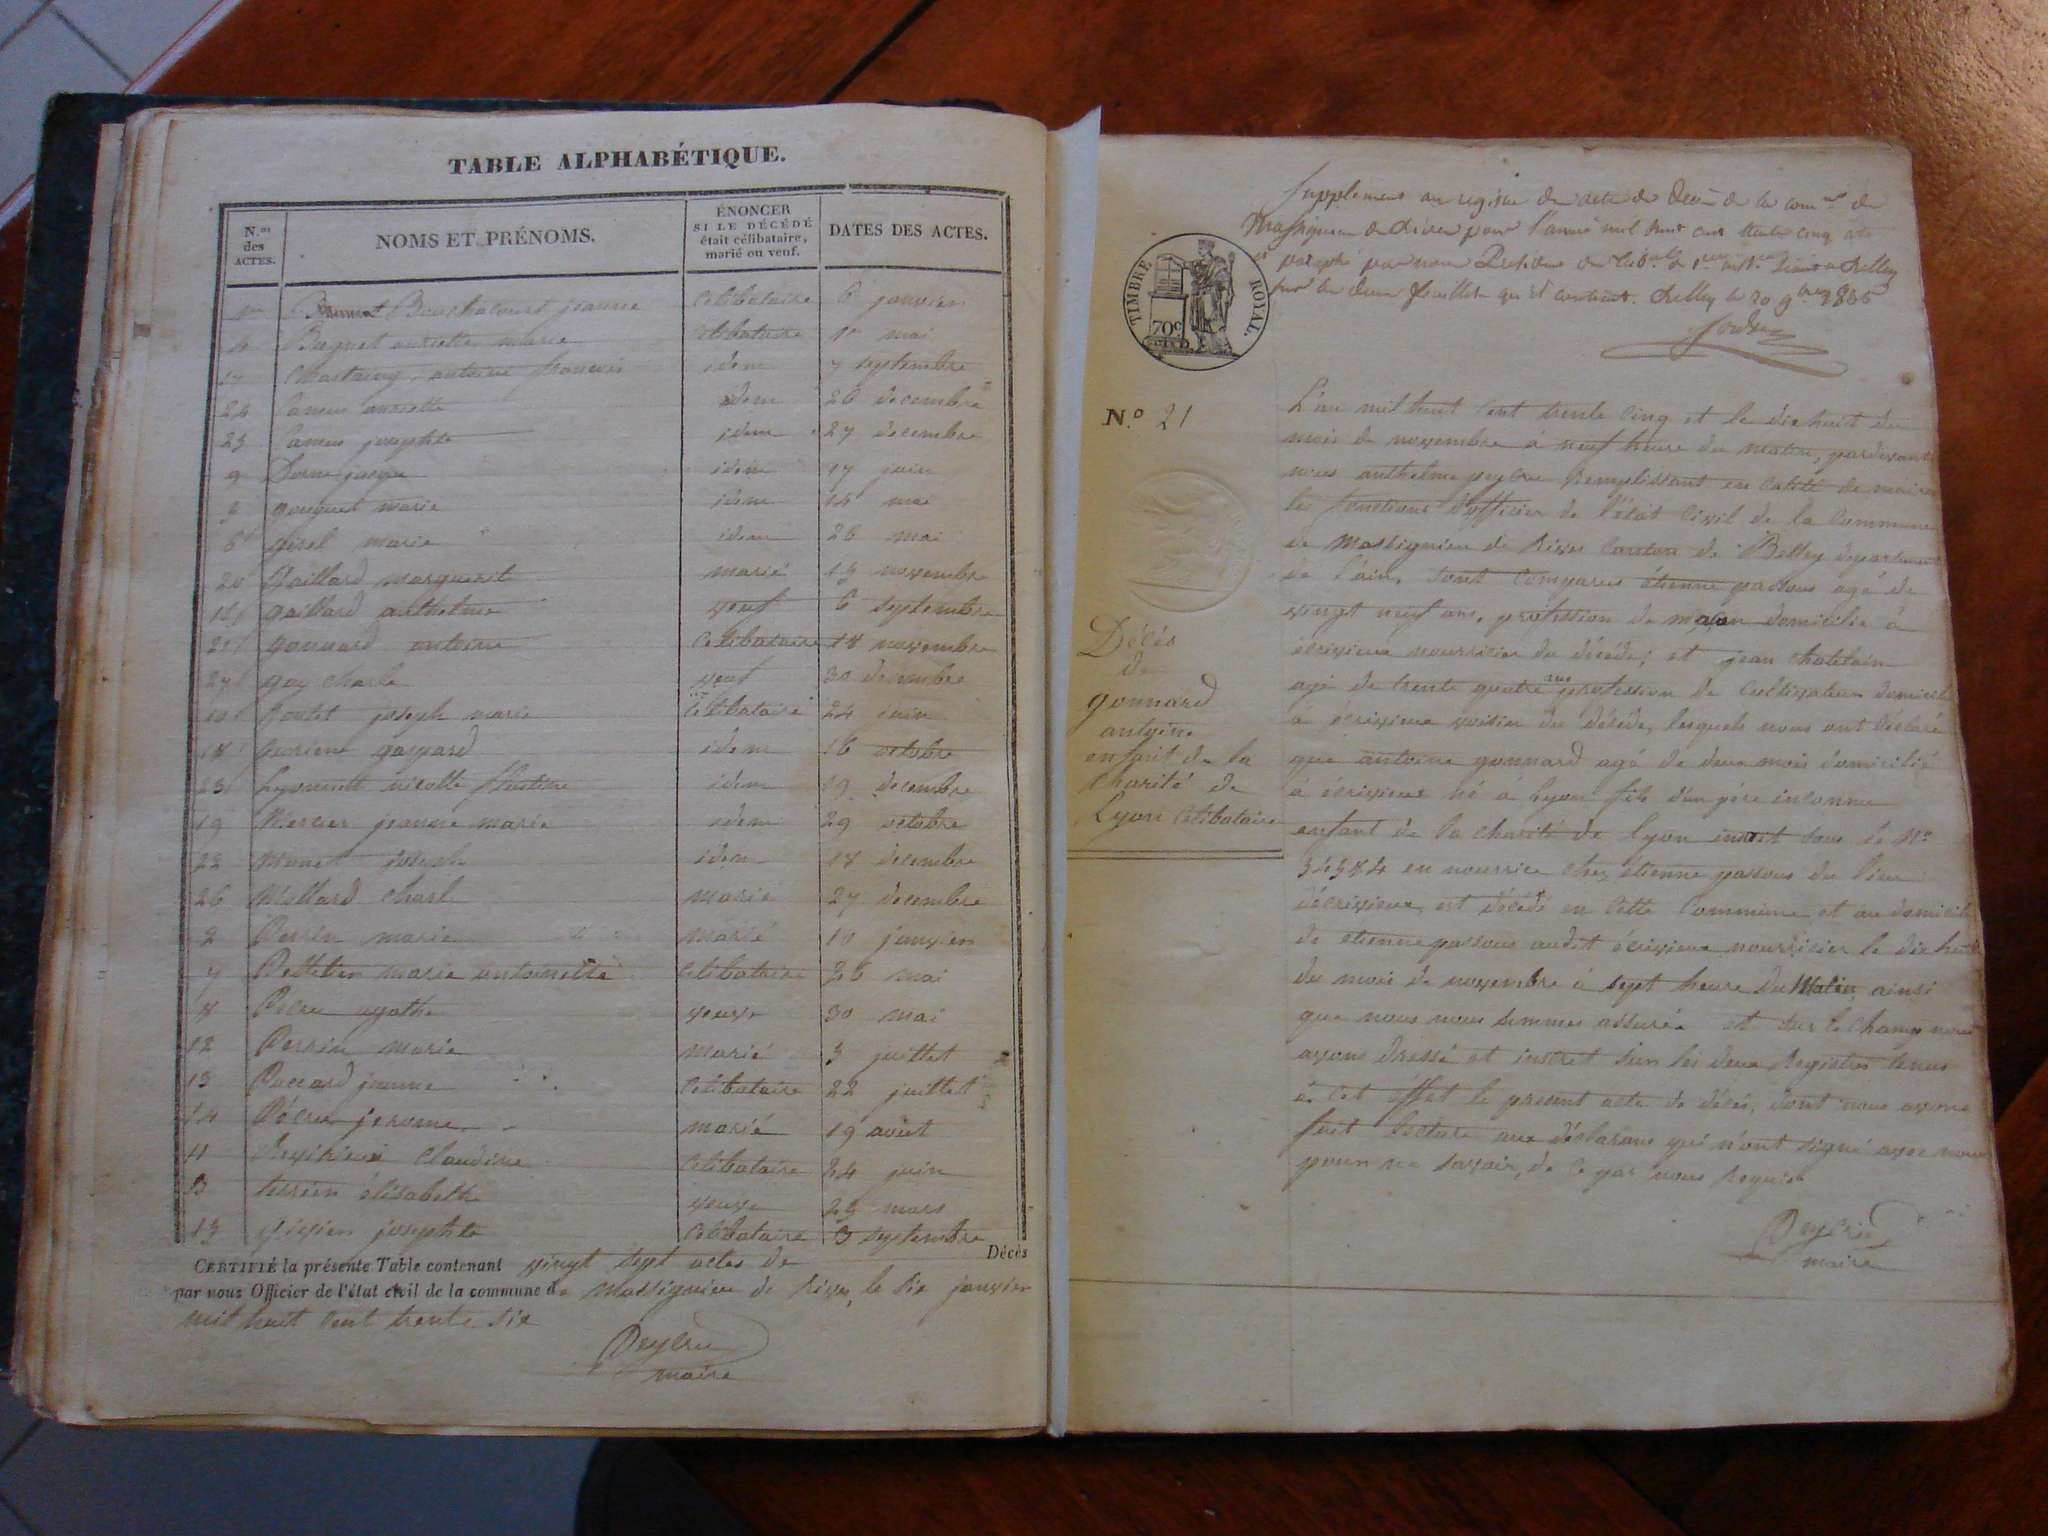 TABLE ALPHABÉTIQUE.
N.os des ACTES.
NOMS ET PRÉNOMS.
ÉNONCER SI LE DÉCÉDÉ était célibataire, marié ou veuf.
DATES DES ACTES.
Bouchacourt jeanne celibataire 6 janvier
marie celibataire mai
17 antoine francois idem 7 septembre
24 annette idem 26 decembre
25 josephte idem 27 decembre
9 idem 17 juin
5 gouguet marie idem 14 mai
6 girel marie idem 26 mai
20 Gaillard marguerit marié 13 novembre
16 gaillard anthelme veuf 6 septembre
21 gonnard antoine celibataire 18 novembre
27 guy charle veuf 30 decembre
10 joseph marie celibataire 24 juin
18 gaspard idem 16 octobre
23 idem 19 decembre
19 Mercier jeanne marie idem 29 octobre
22 Monet joseph idem 18 decembre
26 Mollard charle marié 27 decembre
2 Perrin marie marié 10 janvier
7 Pelletier marie antoinette celibataire 26 mai
8 agathe veuve 30 mai
12 Perrin marie marié 3 juillet
13 Paccard jeanne celibataire 22 juillet
14 jerome marié 19 août
11 claudine celibataire 24 juin
3 terrien élisabeth veuve 29 mars
15 josephte celibataire 3 septembre
CERTIFIÉ la présente Table contenant vingt sept actes de Décès
par nous Officier de l'état civil de la commune de Massignieu de Rives, le six janvier
mil huit cent trente six
Peycru
maire
Supplement au registre des actes de Décès de la com.ne de
Massignieu de Rives pour l'année mil huit cent trente cinq coté
et paraphé par nous President du tribunal de 1ere inst.ce séant a Belley
sur les deux feuillets qu'il contient. Belley le 20 9bre 1835
TIMBRE ROYAL.
70c
N.o 21
Décés
de
gonnard
antoine
enfant de la
charité de
Lyon célibataire
L'an mil huit cent trente cinq et le dix huit du
mois de novembre à neuf heure du matin, pardevant
nous anthelme peycru Remplissant en calité de maire
les fonctions d'officier de l'état civil de la commune
de Massignieu de Rives canton de Belley departement
de l'ain, sont comparus étienne passous agé de
vingt neuf ans, profession de maçon domicilié à
écrivieux nourricier du décédé; et jean chatelain
agé de trente quatre ans profession de cultivateur domicilié
à écrivieux voisin du décédé, lesquels nous ont déclaré
que antoine gonnard agé de deux mois domicilié
à écrivieux né à Lyon fils d'un père inconnu
enfant de la charité de Lyon inscrit sous le No
34584 en nourrice chez étienne passous du lieu
d'écrivieux, est décédé en cette commune et au domicile
de etienne passous audit écrivieux nourricier le dix huit
du mois de novembre à sept heure du Matin ainsi
que nous nous sommes assurée et sur le champ nous
avons dressé et inscrit sur les deux Registres tenus
à cet effet le present acte de décés, dont nous avons
fait lecture aux déclarans qui n'ont signé avec nous
pour ne savoir, de ce par nous Requis
Peycru
maire